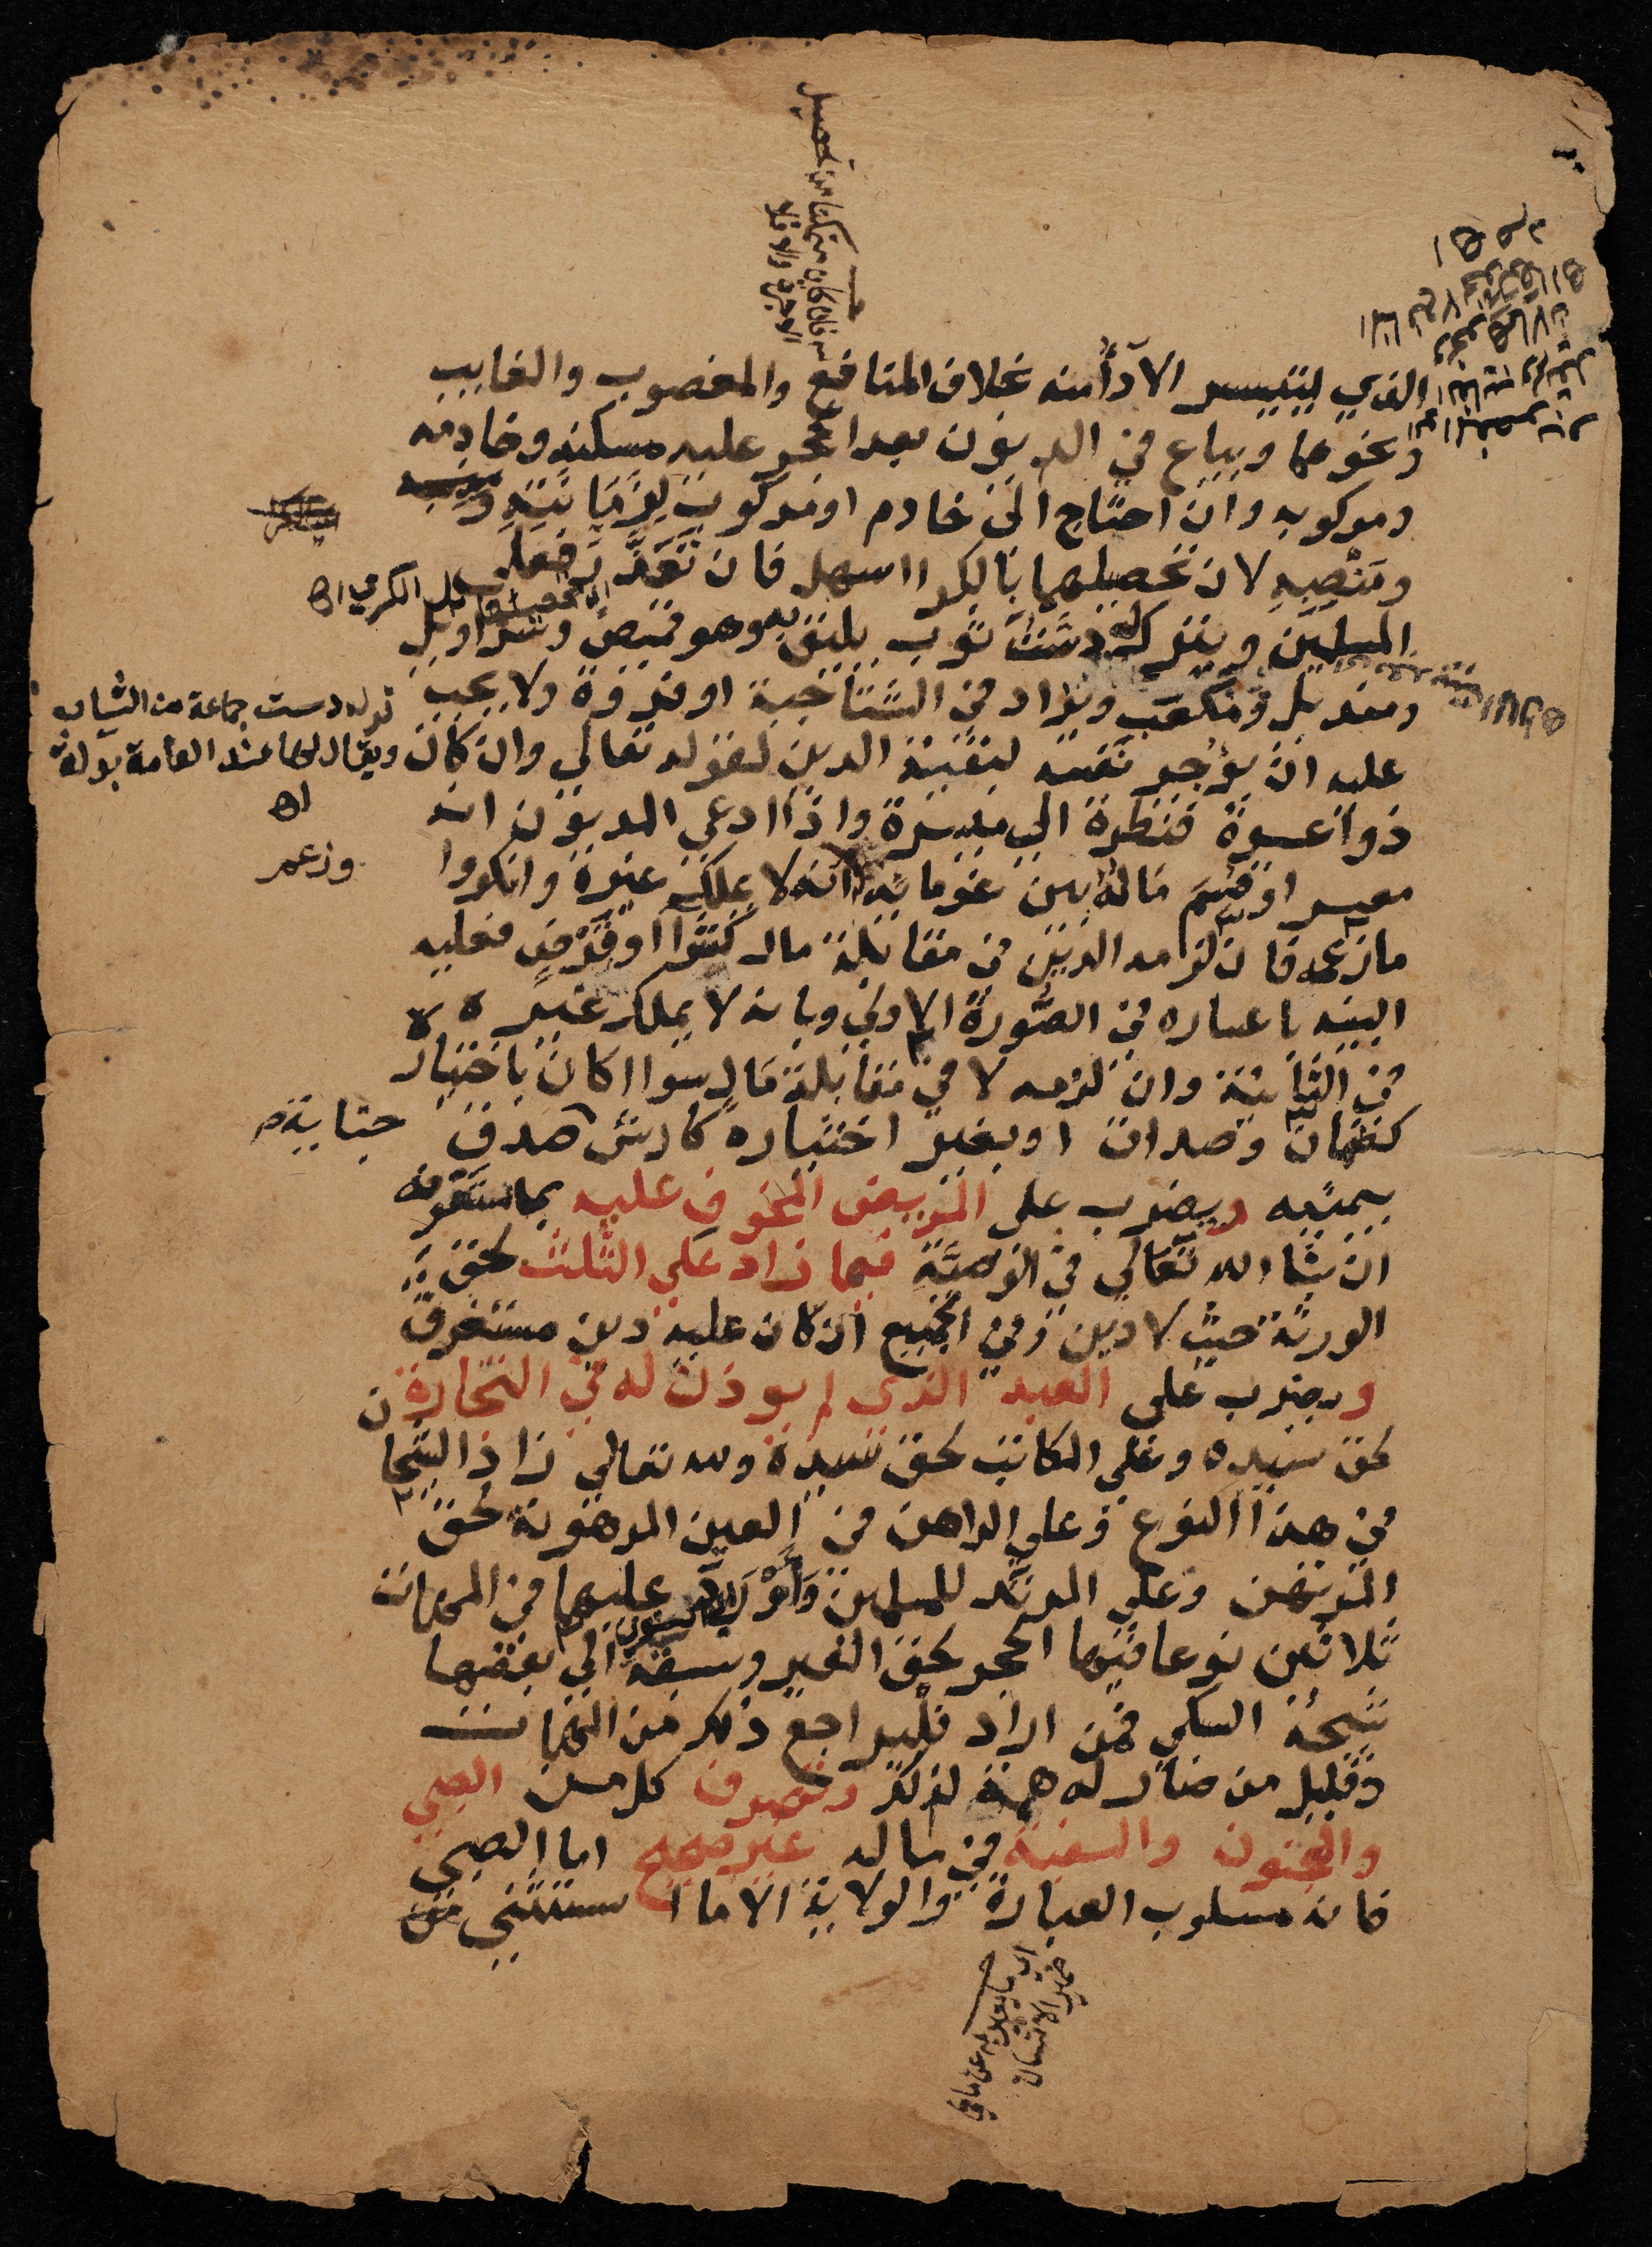 الذي ليتيسر الآدأ منه بخلاف المنافع والمغصوب والغايب
ونحوهما ويباع في الديون بعد الحجر عليه مسكنه وخادمه
ومركوبه وان احتاج الى خادم او مركوب لزمانته
ومنصبه لان تحصيلهما بالكرا اسهل فان تعذر فعلى
المسلمين ويترك له دست ثوب يليق به وهو قميص وسراويل
ومنديل ومكعب ويزاد في الشتا جبة او فروة ولا يجب
عليه ان يؤجر نفسه لبقية الدين لقوله تعالي وان كان
ذوا عسرة فنظرة الي ميسرة واذا ادعي المديون انه
معسر او قسم ماله بين غرمايه انه لا يملك غيره وانكروا
ما زعمه فان لزمه الدين في مقابلة مال كشرآ او قرض فعليه
البينه باعساره في الصورة الاولى وبانه لا يملك غيره
في الثانية وان لزمه لا في مقابلة مال سوا اكان باختياره
كضمان وصداق او بغير اختياره كارش صدق
بيمينه ويضرب على المريض المخوف عليه بما ستعرفه
ان شا الله تعالي في الوصية فيما زاد على الثلث لحق
الورثة حيث لا دين وفي الجميع ان كان عليه دين مستغرق
ويضرب على العبد الذي لم يوذن له في التجارة
لحق سيده وعلى المكاتب لحق سيده ولله تعالي زاد الشيخان
في هذا النوع وعلي الراهن في العين المرهونة لحق
المرتهن وعلي المرتد للمسلمين وأورد عليهما في المهمات
ثلاثين نوعا فيها الحجر لحق الغير وسبقه الي بعضها
شيخه السبكي فمن اراد فليراجع ذلك من المهمات
وقليل من صار له همة لذلك وتصرف كل من الصبي
والمجنون والسفيه في ماله غير صحيح اما الصبي
فانه مسلوب العبارة والولاية الا ما استثني من
اي تحصيلهما بدل الكري اه
قوله دست جماعة من الثياب
ويقال لها عند العامة بدلة
اه
وزعم
جناية